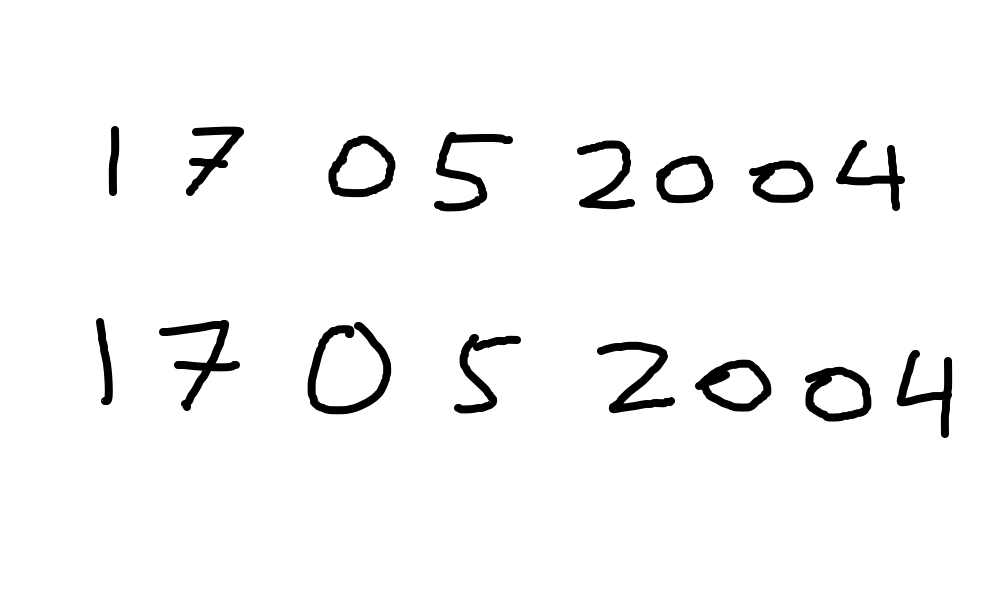 17 05 2004
17 05 2004